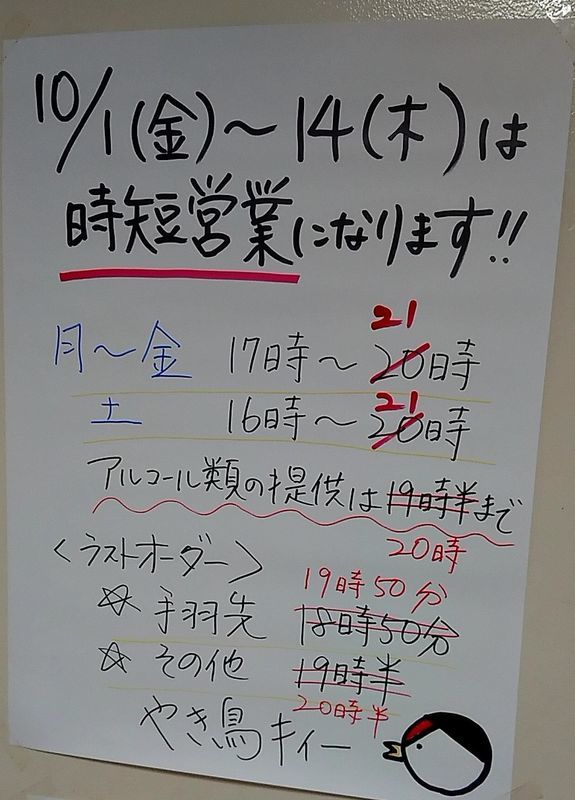 10/1(金)～14(木)は
時短営業になります!!
21
月～金 17時～20時
21
土 16時～20時
アルコール類の提供は19時半まで
20時
〈ラストオーダー〉
19時50分
☆ 手羽先 18時50分
☆ その他 19時半
20時半
やき鳥キィー